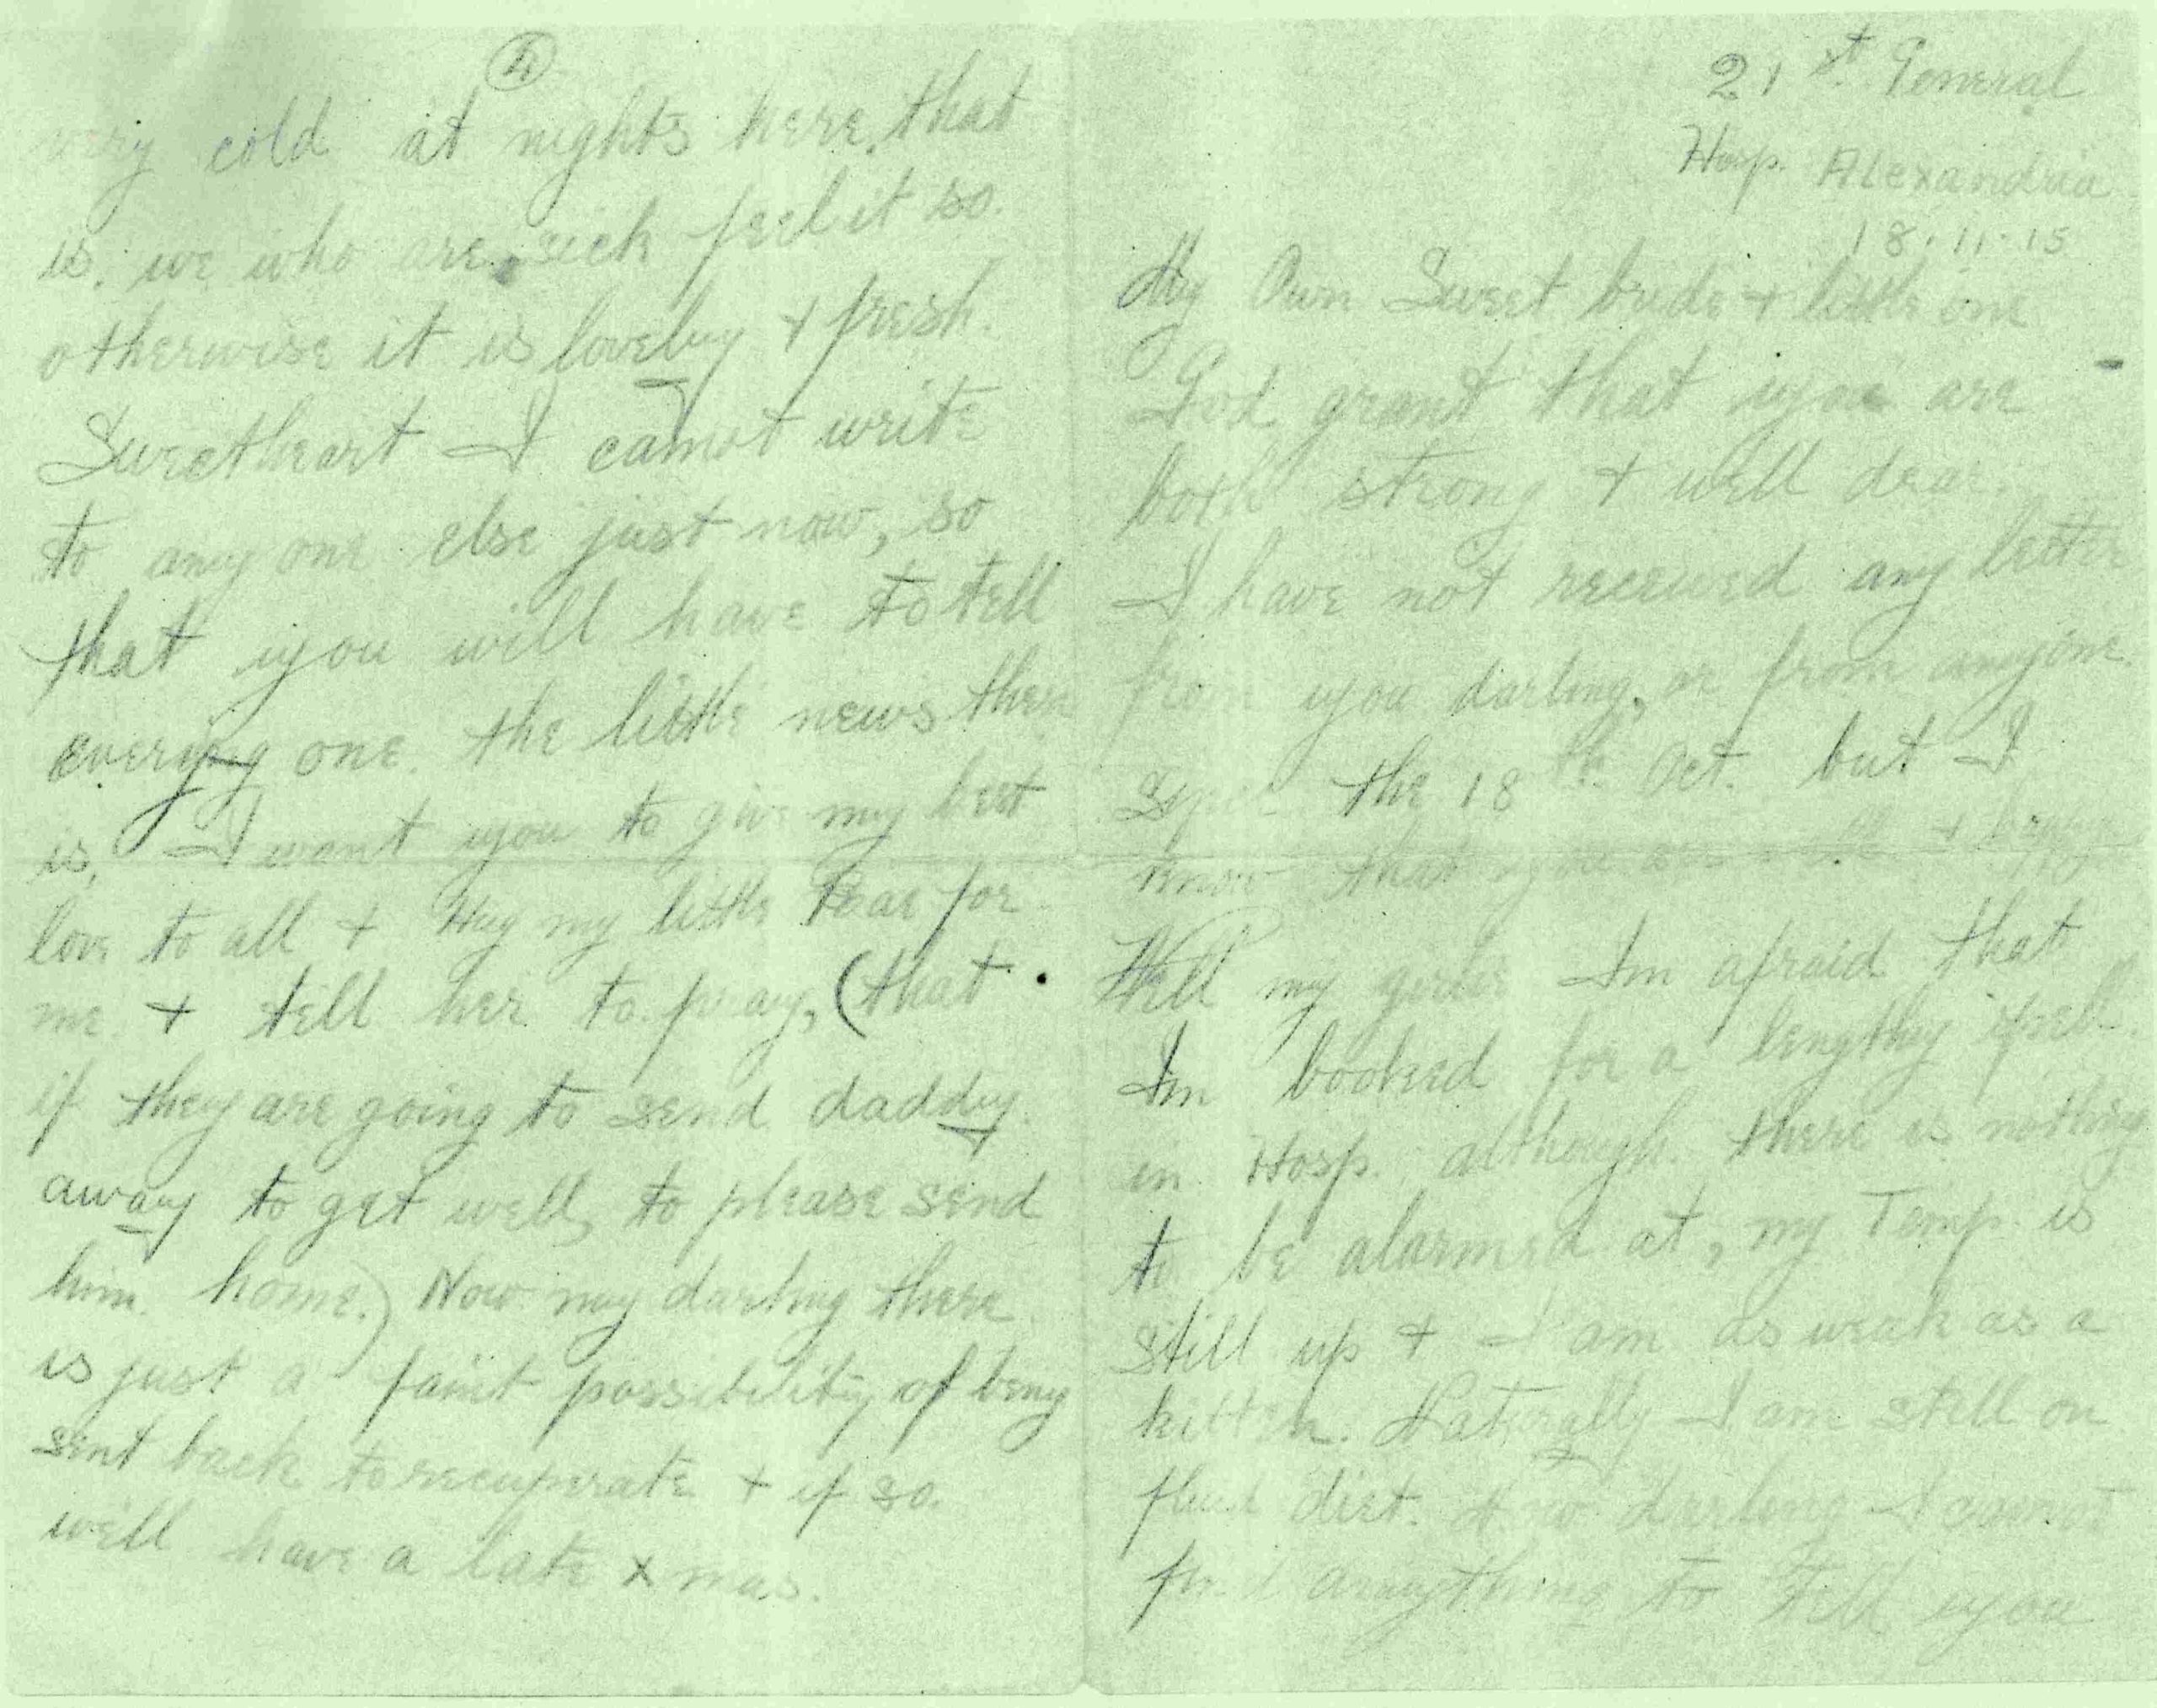 21st General
Hosp. Alexandria
18.11.15
My Own Sweet bride + little one
God grant that you are
both strong + well dear.
I have not received any letter
from you darling, or from anyone.
the 18th. Oct. but I
know that you are well +
Well my girlie Im afraid that
Im booked for a lengthy spell.
in Hosp. although there is nothing
to be alarmed at, my Temp. is
still up + I am as weak as a
kitten. Naturally I am still on
fluid diet. Now Darling I cannot
find anything to tell you
4
very cold at nights here, that
is. we who are sick feel it so.
otherwise it is lovely + fresh.
Sweetheart I cannot write
to any one else just now, so
that you will have to tell
every one. the little news there
is, I want you to give my best
love to all + Hug my little for
me. + tell her to pray, (that
if they are going to send daddy
away to get well, to please send
him home.) Now my darling there
is just a faint possibility of being
sent back to recuperate + if so.
we'll have a late xmas.